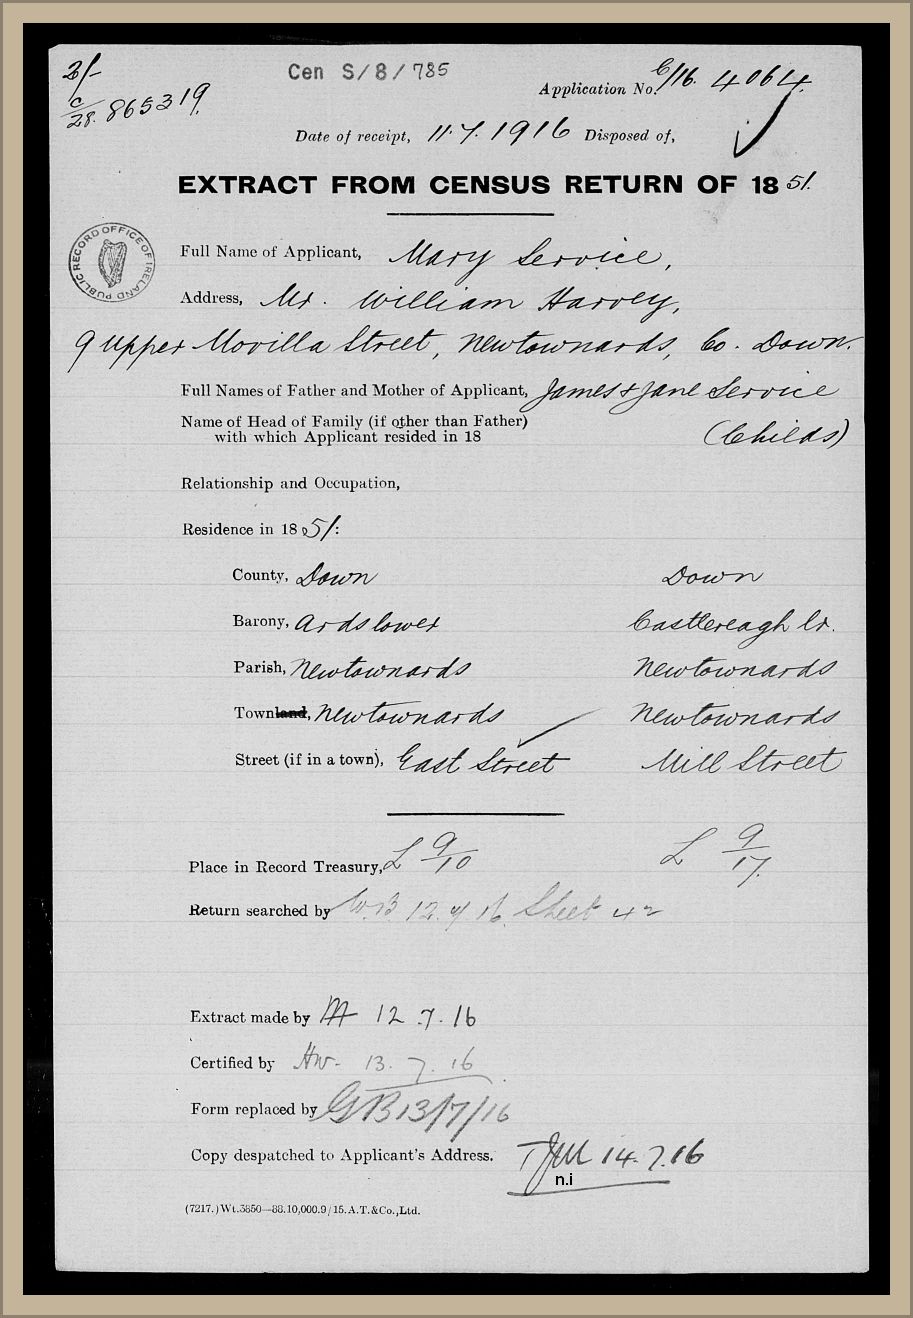 2/-
C/28. 865319.
Cen S/8/785
Application No. C/16. 4064.
Date of receipt, 11.7.1916 Disposed of,
EXTRACT FROM CENSUS RETURN OF 1851.
PUBLIC RECORD OFFICE OF IRELAND
Full Name of Applicant, Mary Service,
Address, Mr. William Harvey,
9 Upper Movilla Street, Newtownards, Co. Down.
Full Names of Father and Mother of Applicant, James & Jane Service
Name of Head of Family (if other than Father)
with which Applicant resided in 18
(Childs)
Relationship and Occupation,
Residence in 1851:
County, Down Down
Barony, Ards lower Castlereagh Lr.
Parish, Newtownards Newtownards
Townland, Newtownards Newtownards
Street (if in a town), East Street Mill Street
Place in Record Treasury, L 9/10 L 9/17.
Return searched by W.B. 12.7.16. Sheet 42
Extract made by 12.7.16
Certified by HW. 13.7.16
Form replaced by GB 13/7/16
Copy despatched to Applicant's Address. 14.7.16
n.i
(7217.)Wt.3850—88.10,000.9/15.A.T.&Co.,Ltd.